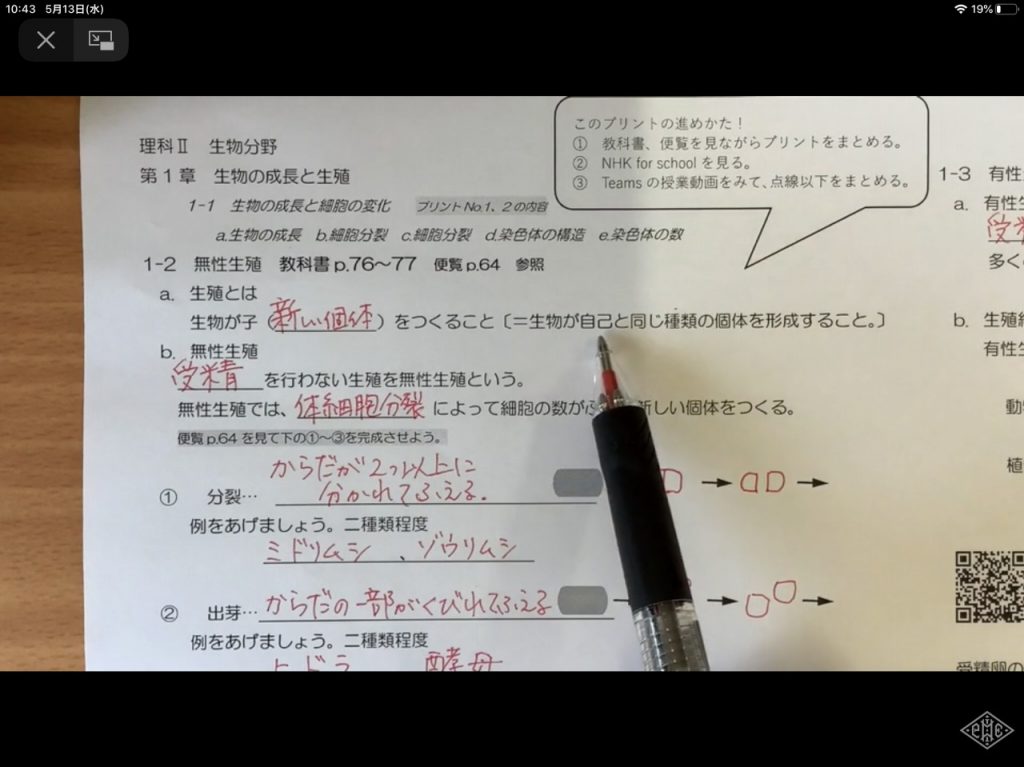 10:43 5月13日(水)
19%
このプリントの進めかた！
① 教科書、便覧を見ながらプリントをまとめる。
② NHK for school を見る。
③ Teams の授業動画をみて、点線以下をまとめる。
理科Ⅱ 生物分野
第1章 生物の成長と生殖
1-1 生物の成長と細胞の変化 プリントNo.1、2の内容
a.生物の成長 b.細胞分裂 c.細胞分裂 d.染色体の構造 e.染色体の数
1-2 無性生殖 教科書 p.76～77 便覧 p.64 参照
a. 生殖とは
生物が子（新しい個体）をつくること〔＝生物が自己と同じ種類の個体を形成すること。〕
b. 無性生殖
受精を行わない生殖を無性生殖という。
無性生殖では、体細胞分裂によって細胞の数がふ 新しい個体をつくる。
便覧 p.64 を見て下の①～③を完成させよう。
① 分裂… からだが2つ以上に
分かれてふえる。
例をあげましょう。二種類程度
ミドリムシ 、ゾウリムシ
② 出芽… からだの一部がくびれてふえる
例をあげましょう。二種類程度
ヒドラ 酵母
1-3 有性
a. 有性生
受精
多く
b. 生殖
有性生
動
植
受精卵の